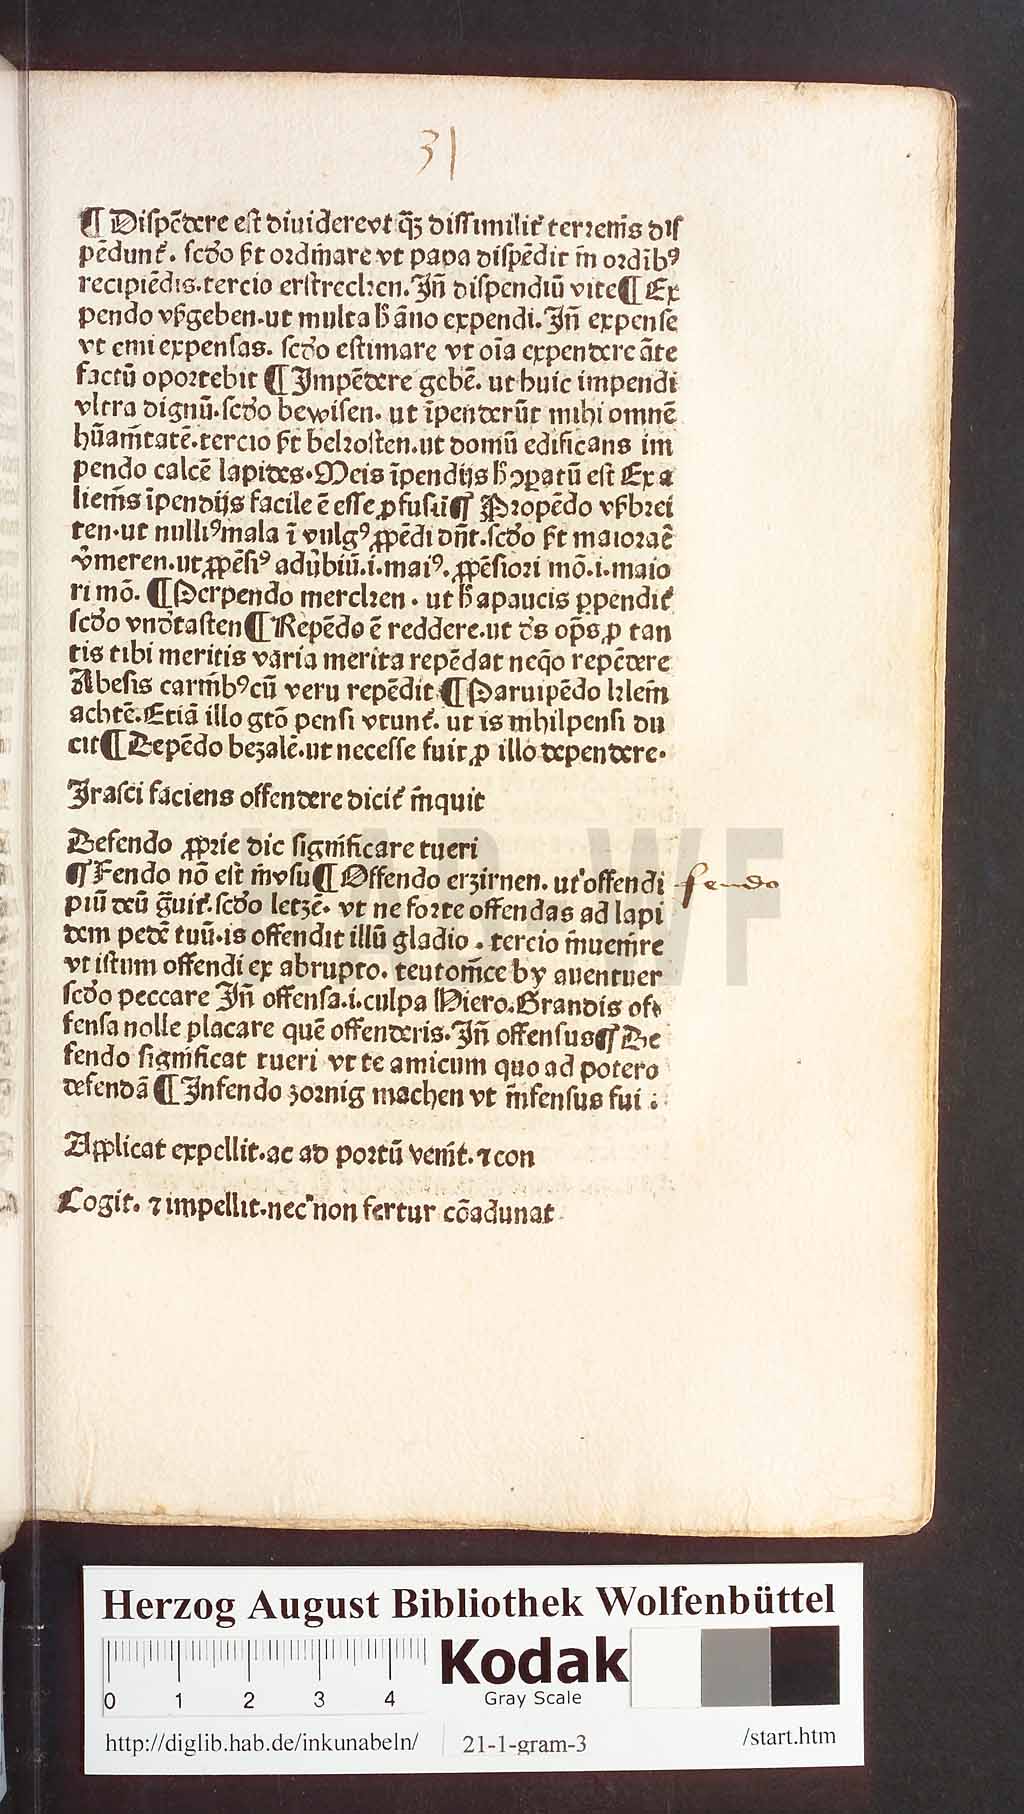 31
¶ Dispēdere est diuiderevt q̄ꝫ dissimilit̉ terrem̄s dis
pēdunt̉. scd̕o ſt ordīnare vt papa dispēdit in̄ ordīb⁹
recipiēdis.tercio erstrecken. Jn̄ dispendiū vite¶ Ex
pendo vſgeben.ut multa ħ āno expendi. Jn̄ expense
vt emi expensas. scd̕o estimare vt oīa expendere āte
factū oportebit ¶ Jmpēdere gebē. ut huic impendi
vltra dignū.scd̕o bewisen. ut īpenderūt mihi omnē
hūanītatē.tercio ſt bekosten.ut domū edificans im
pendo calcē lapides. Meis īpendijs ħ ꝯparatū est Ex a
liem̄s īpendijs facile ē esse ꝓfusū¶ Propēdo vſbrei
ten.ut nulli⁹mala ī vulg⁹ ꝓpēdi dn̄t.scd̕o ſt maioraē
v̄meren.ut ꝓpēsi⁹ adūbiū.i.mai⁹. ꝓpēsiori mō.i.maio
ri mō. ¶ Perpendo mercken. ut ħ apaucis ꝑpendit̉
scd̕o vnd̕tasten¶ Repēdo ē reddere.ut d̕s op̄s ꝓ tan
tis tibi meritis varia merita repēdat neq̄o repēdere
Abesis carmīb⁹cū veru repēdit ¶ Paruipēdo klem̄
achtē.Etiā illo gtō pensi vtunt̉. ut is nihilpensi du
cit¶ Depēdo bezalē.ut necesse fuit ꝓ illo dependere.
Jrasci faciens offendere dicit̉ in̄quit
Defendo ꝓprie dic significare tueri
¶ Fendo nō est in̄vsu¶ Offendo erzirnen. ut offendi
fendo
piū deū ḡuit̉.scd̕o letzē. vt ne forte offendas ad lapi
dem pedē tuū.is offendit illū gladio. tercio in̄uenīre
vt istum offendi ex abrupto. teutonīce by auentuer
scd̕o peccare Jn̄ offensa.i.culpa Hiero.Grandis of
fensa nolle placare quē offenderis.Jn̄ offensus¶ De
fendo significat tueri vt te amicum quo ad potero
defendā ¶ Jnfendo zornig machen vt in̄fensus fui.
Applicat expellit.ac ad portū venīt.⁊ con
Cogit. ⁊ impellit.nec non fertur cōadunat.
HAB-WF
Herzog August Bibliothek Wolfenbüttel
0 1 2 3 4
Kodak
Gray Scale
http://diglib.hab.de/inkunabeln/ 21-1-gram-3 /start.htm